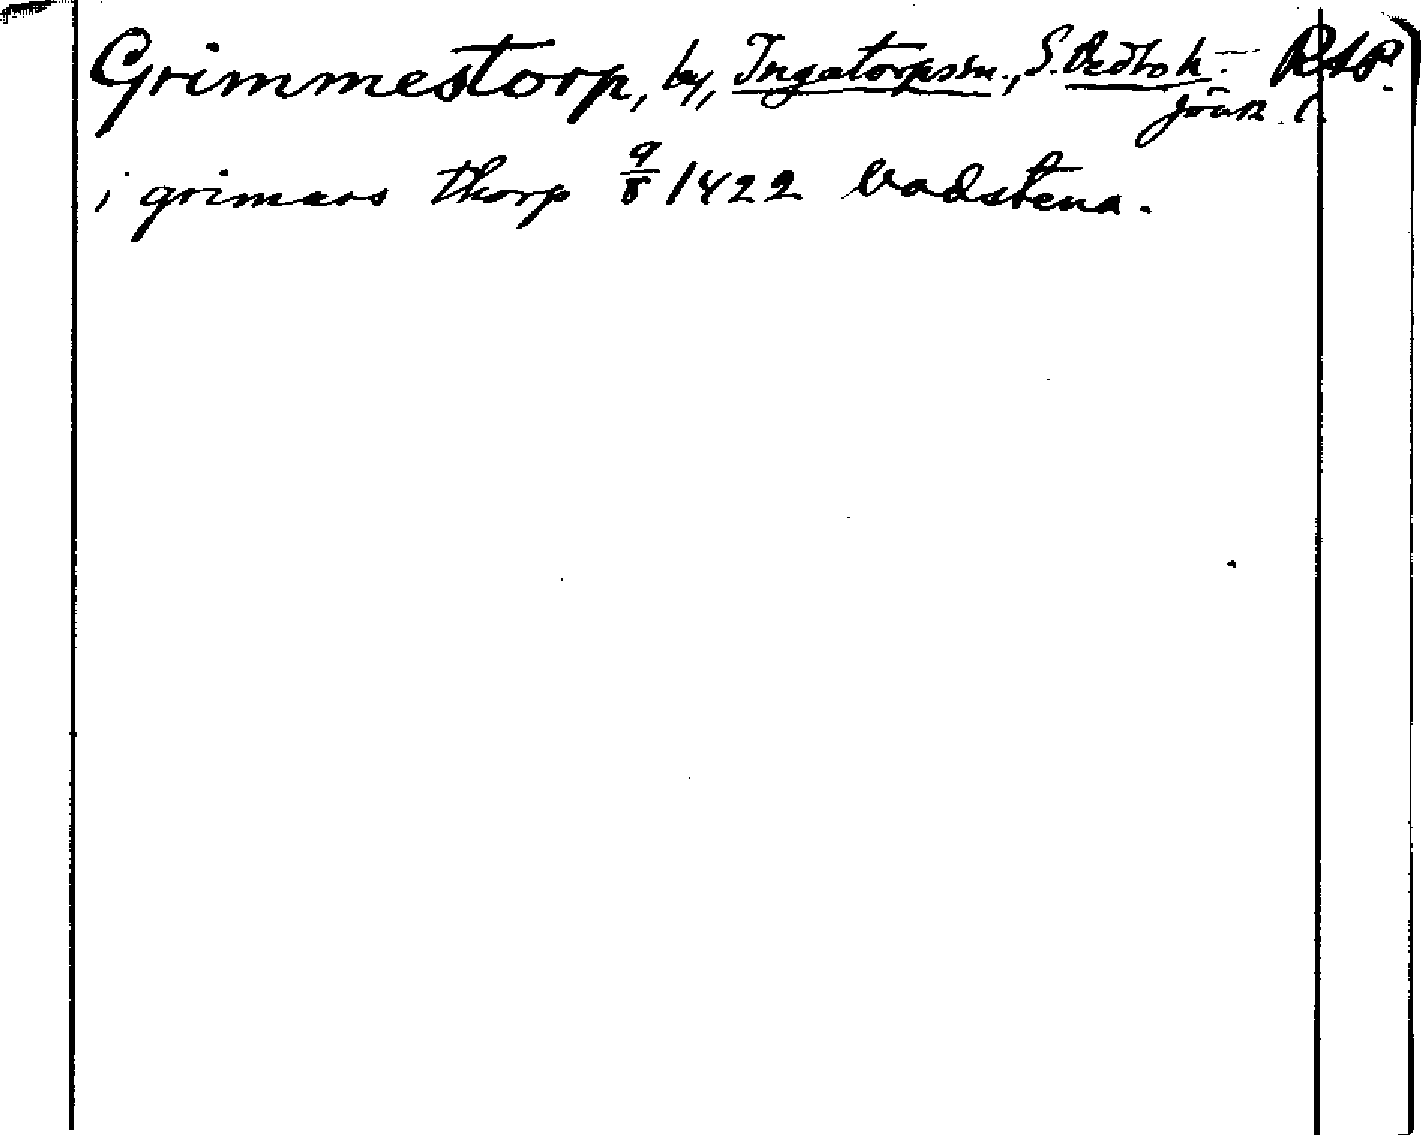 Grimmestorp, by, Ingatorps sn., S. Vedbo h. RAP.
Jönk. l.
i grimars thorp 9/8 1422 Vadstena.